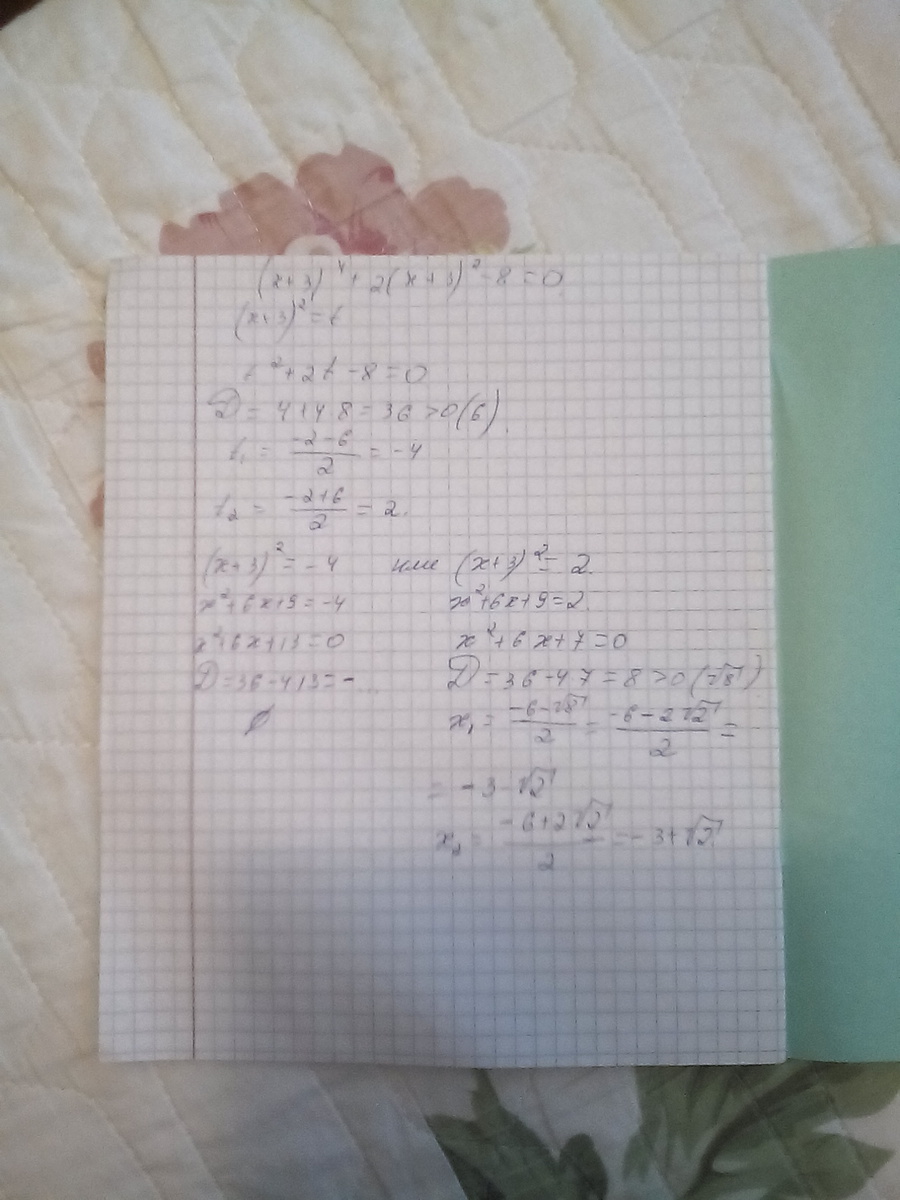 (x+3)⁴+2(x+3)²-8=0
(x+3)²=t
t²+2t-8=0
D=4+4·8=36>0(6)
t₁=(-2-6)/2=-4
t₂=(-2+6)/2=2.
(x+3)²=-4 или (x+3)²=2.
x²+6x+9=-4 x²+6x+9=2.
x²+6x+13=0 x²+6x+7=0
D=36-4·13=-... D=36-4·7=8>0(√8)
∅ x₁=(-6-√8)/2=(-6-2√2)/2=
=-3-√2
x₂=(-6+2√2)/2=-3+√2.